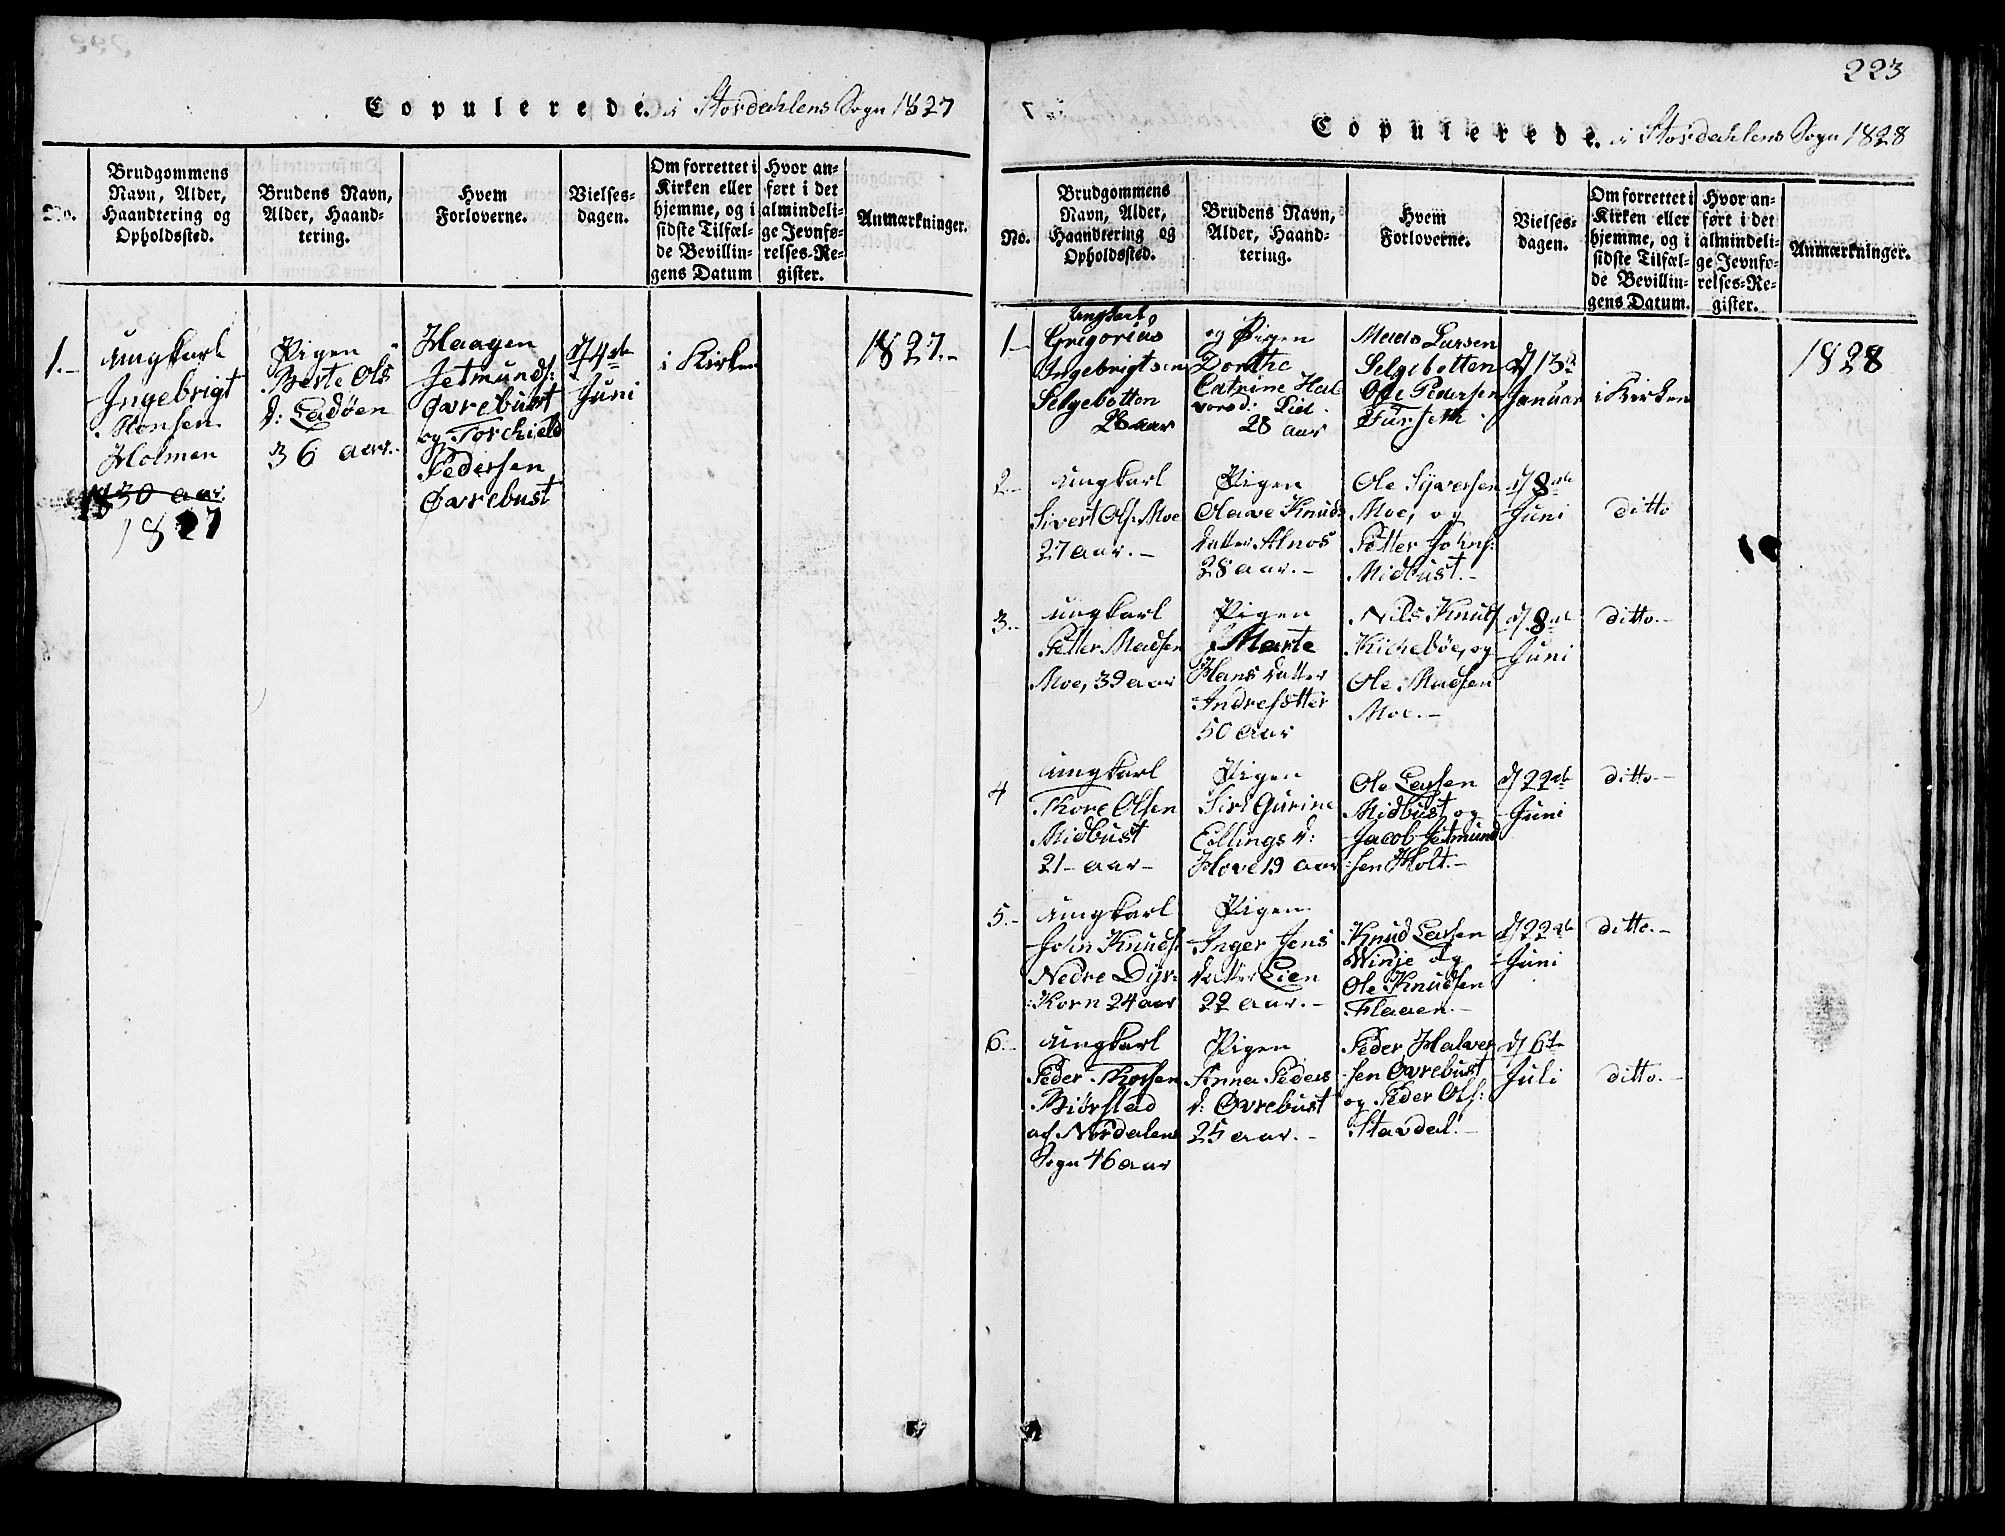 Copulerede. i Stordahlens Sogn 1827
No.
Brudgommens
Navn, Alder,
Haandtering og
Opholdssted.
Brudens Navn,
Alder, Haand-
tering.
Hvem
Forloverne.
Vielses-
dagen.
Om forrettet i
Kirken eller
hjemme, og i
sidste Tilfæl-
de Bevillin-
gens Datum
Hvor an-
ført i det
almindeli-
ge Jevnfø-
relses-Re-
gister.
Anmærkninger.
1.-
ungkarl
Ingebrigt
Monsen
Holmen
30 aar
1827
Pigen
Berte Ols
d: Ladøen
36 aar.-
Haagen
Jetmunds:
Øvrebust
og Torchield
Pedersen
Øvrebust
d 4de
Juni
i Kirken
1827.-
223
Copulerede. i Stordahlens Sogn 1828
No.
Brudgommens
Navn, Alder,
Haandtering og
Opholdssted.
Brudens Navn,
Alder, Haand-
tering.
Hvem
Forloverne.
Vielses-
dagen.
Om forrettet i
Kirken eller
hjemme, og i
sidste Tilfæl-
de Bevillin-
gens Datum.
Hvor an-
ført i det
almindeli-
ge Jevnfø-
relses-Re-
gister.
Anmærkninger.
1-
Ungkarl
Gregorius
Ingebrigtsen
Selgebotten
26 aar
og Pigen
Dorthe
Catrine Hal
vorsd: Lied
28 aar
Larsen
Selgebotten
Ole Pedersen
Furseth
d 13de
Januar
i Kirken
1828
2.-
ungkarl
Sivert Ols. Moe
27 aar.-
Pigen
Olave Knuds
datter Alnos
28 aar.-
Ole Syversen
Moe, og
Petter Johns:
Midbust.-
d 8de
Juni
ditto
3.-
ungkarl
Petter Madsen
Moe, 39 aar
Pigen
Marte
Hans datter
Andresætter
50 aar
Nils Knuds
Kirkebøe, og
Ole Madsen
Moe.-
d 8de
Juni
ditto.-
4
ungkarl
Thore Olsen
Midbust
21- aar-
Pigen
Siri Gurine
Ellings d:
Hove 19 aar
Ole Larsen
Midbust og
Jacob Jetmund
:sen Holt.-
d 22de
Juni
ditto.-
5.-
ungkarl
John Knuds:
Nedre Dyr:
:Korn 24 aar
Pigen
Inger Jens
datter Lien
22 aar.-
Knud Larsen
Winje og
Ole Knudsen
Flaaen.-
d 22de
Juni
ditto.-
6.-
ungkarl
Peder Thorsen
Biørstad
af Nordalens
Sogn 46 aar
Pigen
Anna Peders
d: Øvrebust
25 aar.-
Peder Halvor
:sen Øvrebust
og Peder Ols:
Stavdal.-
d 6te
Juli
ditto.-